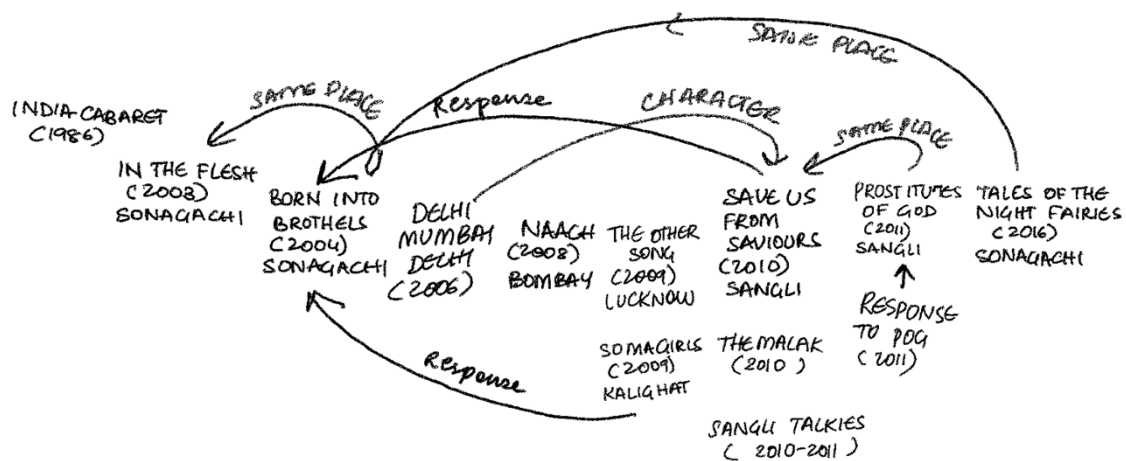 SAME PLACE
SAME PLACE
Response
CHARACTER
SAME PLACE
INDIA-CABARET
(1986)
IN THE FLESH
(2003)
SONAGACHI
BORN INTO
BROTHELS
(2004)
SONAGACHI
DELHI
MUMBAI
DELHI
(2006)
NAACH
(2008)
BOMBAY
THE OTHER
SONG
(2009)
LUCKNOW
SAVE US
FROM
SAVIOURS
(2010)
SANGLI
PROSTITUTES
OF GOD
(2011)
SANGLI
TALES OF THE
NIGHT FAIRIES
(2016)
SONAGACHI
RESPONSE
TO POG
(2011)
SOMAGIRLS
(2009)
KALIGHAT
THEMALAK
(2010)
Response
SANGLI TALKIES
(2010-2011)